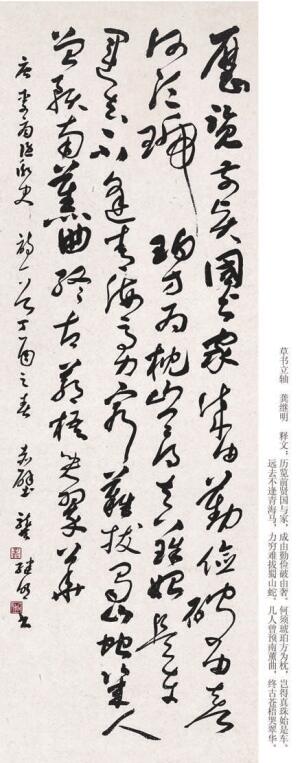 草书立轴 龚继明 释文：历览前贤国与家，成由勤俭破由奢。何须琥珀方为枕，岂得真珠始是车。
远去不逢青海马，力穷难拔蜀山蛇。几人曾预南薰曲，终古苍梧哭翠华。
歷覽前賢國與家成由勤儉破由奢
何須琥珀方為枕豈得真珠始是車
運去不逢青海馬力窮難拔蜀山蛇幾人
曾預南薰曲終古蒼梧哭翠華
唐李商隱詠史詩一首丁酉之春赤壁龔継明書